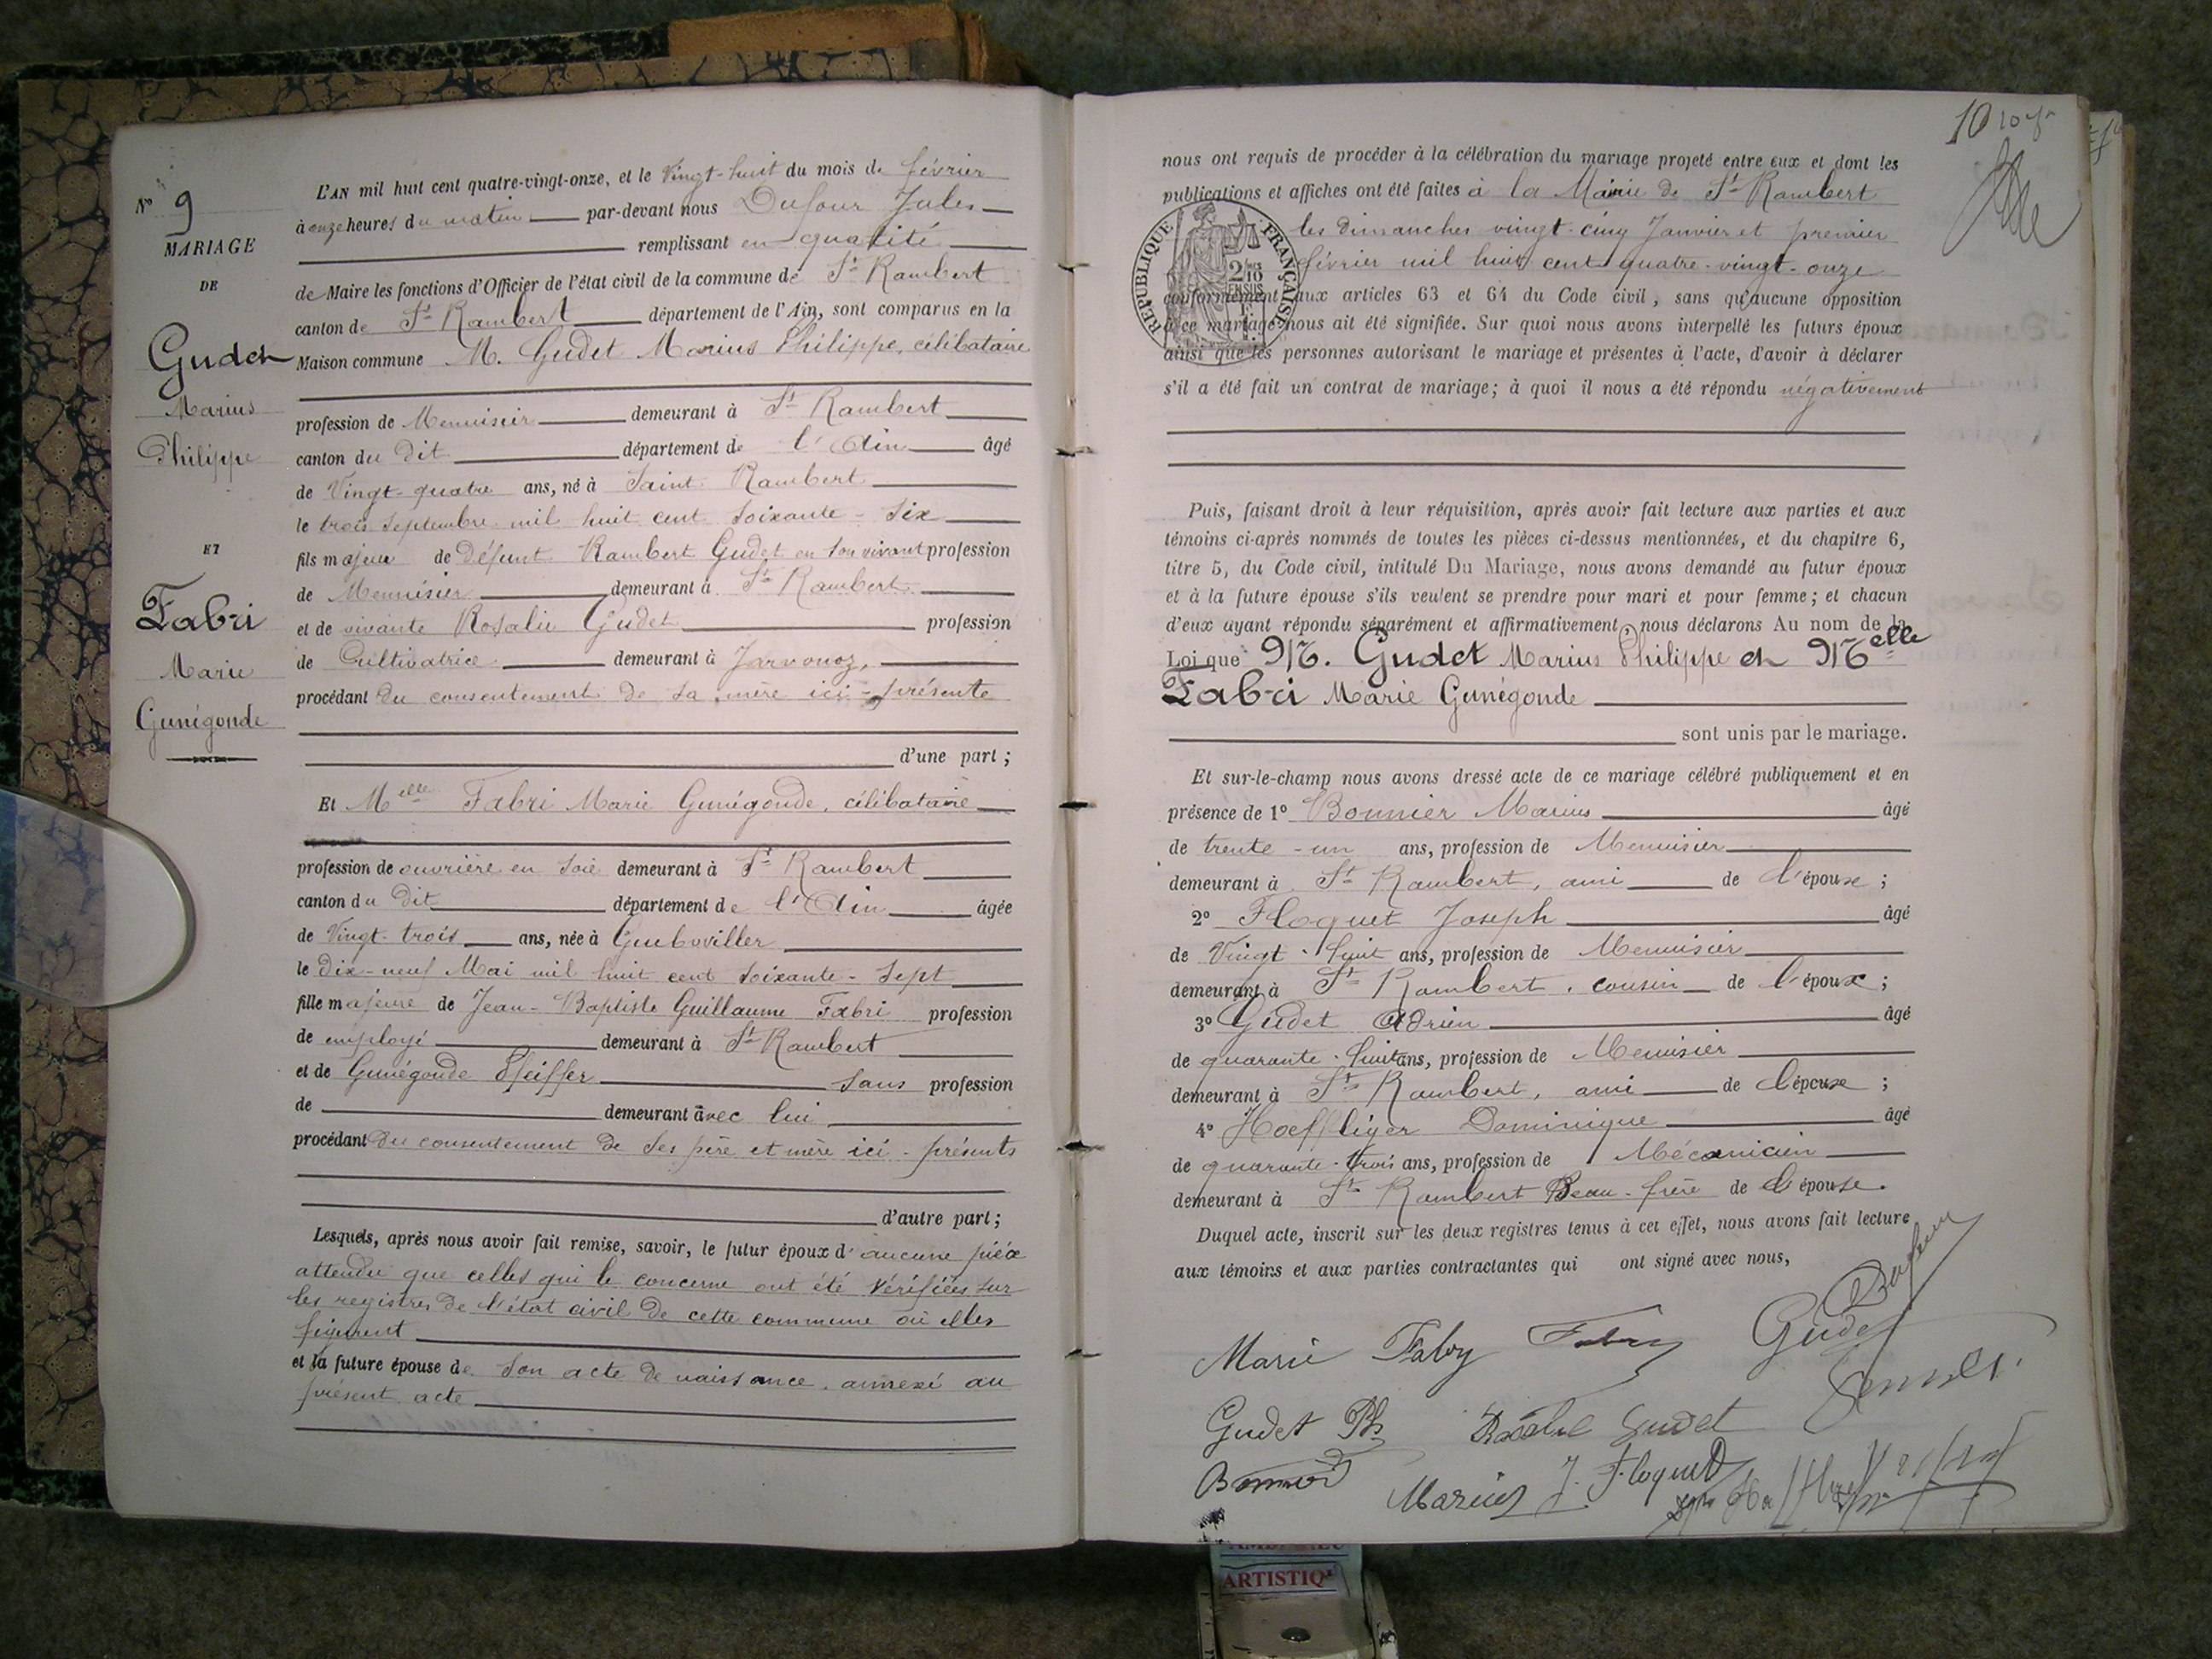 L'AN mil huit cent quatre-vingt-onze, et le Vingt-huit du mois de février
à onze heures du matin par-devant nous Dufour Jules
remplissant en qualité
de Maire les fonctions d'Officier de l'état civil de la commune de St Rambert
canton de St Rambert département de l'Ain, sont comparus en la
Maison commune M. Gudet Marius Philippe, célibataire
profession de Menuisier demeurant à St Rambert
canton du dit département de l'Ain âgé
de Vingt-quatre ans, né à Saint Rambert
le trois Septembre mil huit cent soixante-six
fils majeur de défunt Rambert Gudet en son vivant profession
de Menuisier demeurant à St Rambert
et de vivante Rosalie Gudet profession
de Cultivatrice demeurant à Javornoz,
procédant du consentement de sa mère ici-présente
d'une part ;
Et Melle Fabri Marie Gunégonde, célibataire
profession de ouvrière en soie demeurant à St Rambert
canton du dit département de l'Ain âgée
de Vingt-trois ans, née à Guebviller
le dix-neuf Mai mil huit cent soixante-sept
fille majeure de Jean-Baptiste Guillaume Fabri profession
de employé demeurant à St Rambert
et de Gunégonde Pfeiffer sans profession
de demeurant avec lui
procédant du consentement de ses père et mère ici-présents
d'autre part ;
Lesquels, après nous avoir fait remise, savoir, le futur époux d'aucune pièce
attendu que celles qui le concerne ont été vérifiées sur
les registres de l'état civil de cette commune où elles
figurent
et la future épouse de son acte de naissance, annexé au
présent acte
N° 9
MARIAGE
DE
Gudet
Marius
Philippe
ET
Fabri
Marie
Gunégonde
10
nous ont requis de procéder à la célébration du mariage projeté entre eux et dont les
publications et affiches ont été faites à la Mairie de St Rambert
les dimanches vingt-cinq Janvier et premier
février mil huit cent quatre-vingt-onze
conformément aux articles 63 et 64 du Code civil, sans qu'aucune opposition
à ce mariage nous ait été signifiée. Sur quoi nous avons interpellé les futurs époux
ainsi que les personnes autorisant le mariage et présentes à l'acte, d'avoir à déclarer
s'il a été fait un contrat de mariage; à quoi il nous a été répondu négativement
RÉPUBLIQUE FRANÇAISE
Puis, faisant droit à leur réquisition, après avoir fait lecture aux parties et aux
témoins ci-après nommés de toutes les pièces ci-dessus mentionnées, et du chapitre 6,
titre 5, du Code civil, intitulé Du Mariage, nous avons demandé au futur époux
et à la future épouse s'ils veulent se prendre pour mari et pour femme ; et chacun
d'eux ayant répondu séparément et affirmativement, nous déclarons Au nom de la
Loi que M. Gudet Marius Philippe et Melle
Fabri Marie Gunégonde
sont unis par le mariage.
Et sur-le-champ nous avons dressé acte de ce mariage célébré publiquement et en
présence de 1° Bonnier Marius âgé
de trente-un ans, profession de Menuisier
demeurant à St Rambert, ami de l'épouse ;
2° Floquet Joseph âgé
de Vingt-huit ans, profession de Menuisier
demeurant à St Rambert, cousin de l'époux ;
3° Gudet Adrien âgé
de quarante-huit ans, profession de Menuisier
demeurant à St Rambert, ami de l'épouse ;
4° Hoeffliger Dominique âgé
de quarante-trois ans, profession de Mécanicien
demeurant à St Rambert Beau-frère de l'épouse.
Duquel acte, inscrit sur les deux registres tenus à cet effet, nous avons fait lecture
aux témoins et aux parties contractantes qui ont signé avec nous,
Marie Fabry Fabry Gudet
Gudet Ph Gudet
Marius J. Floquet
ARTISTIQ